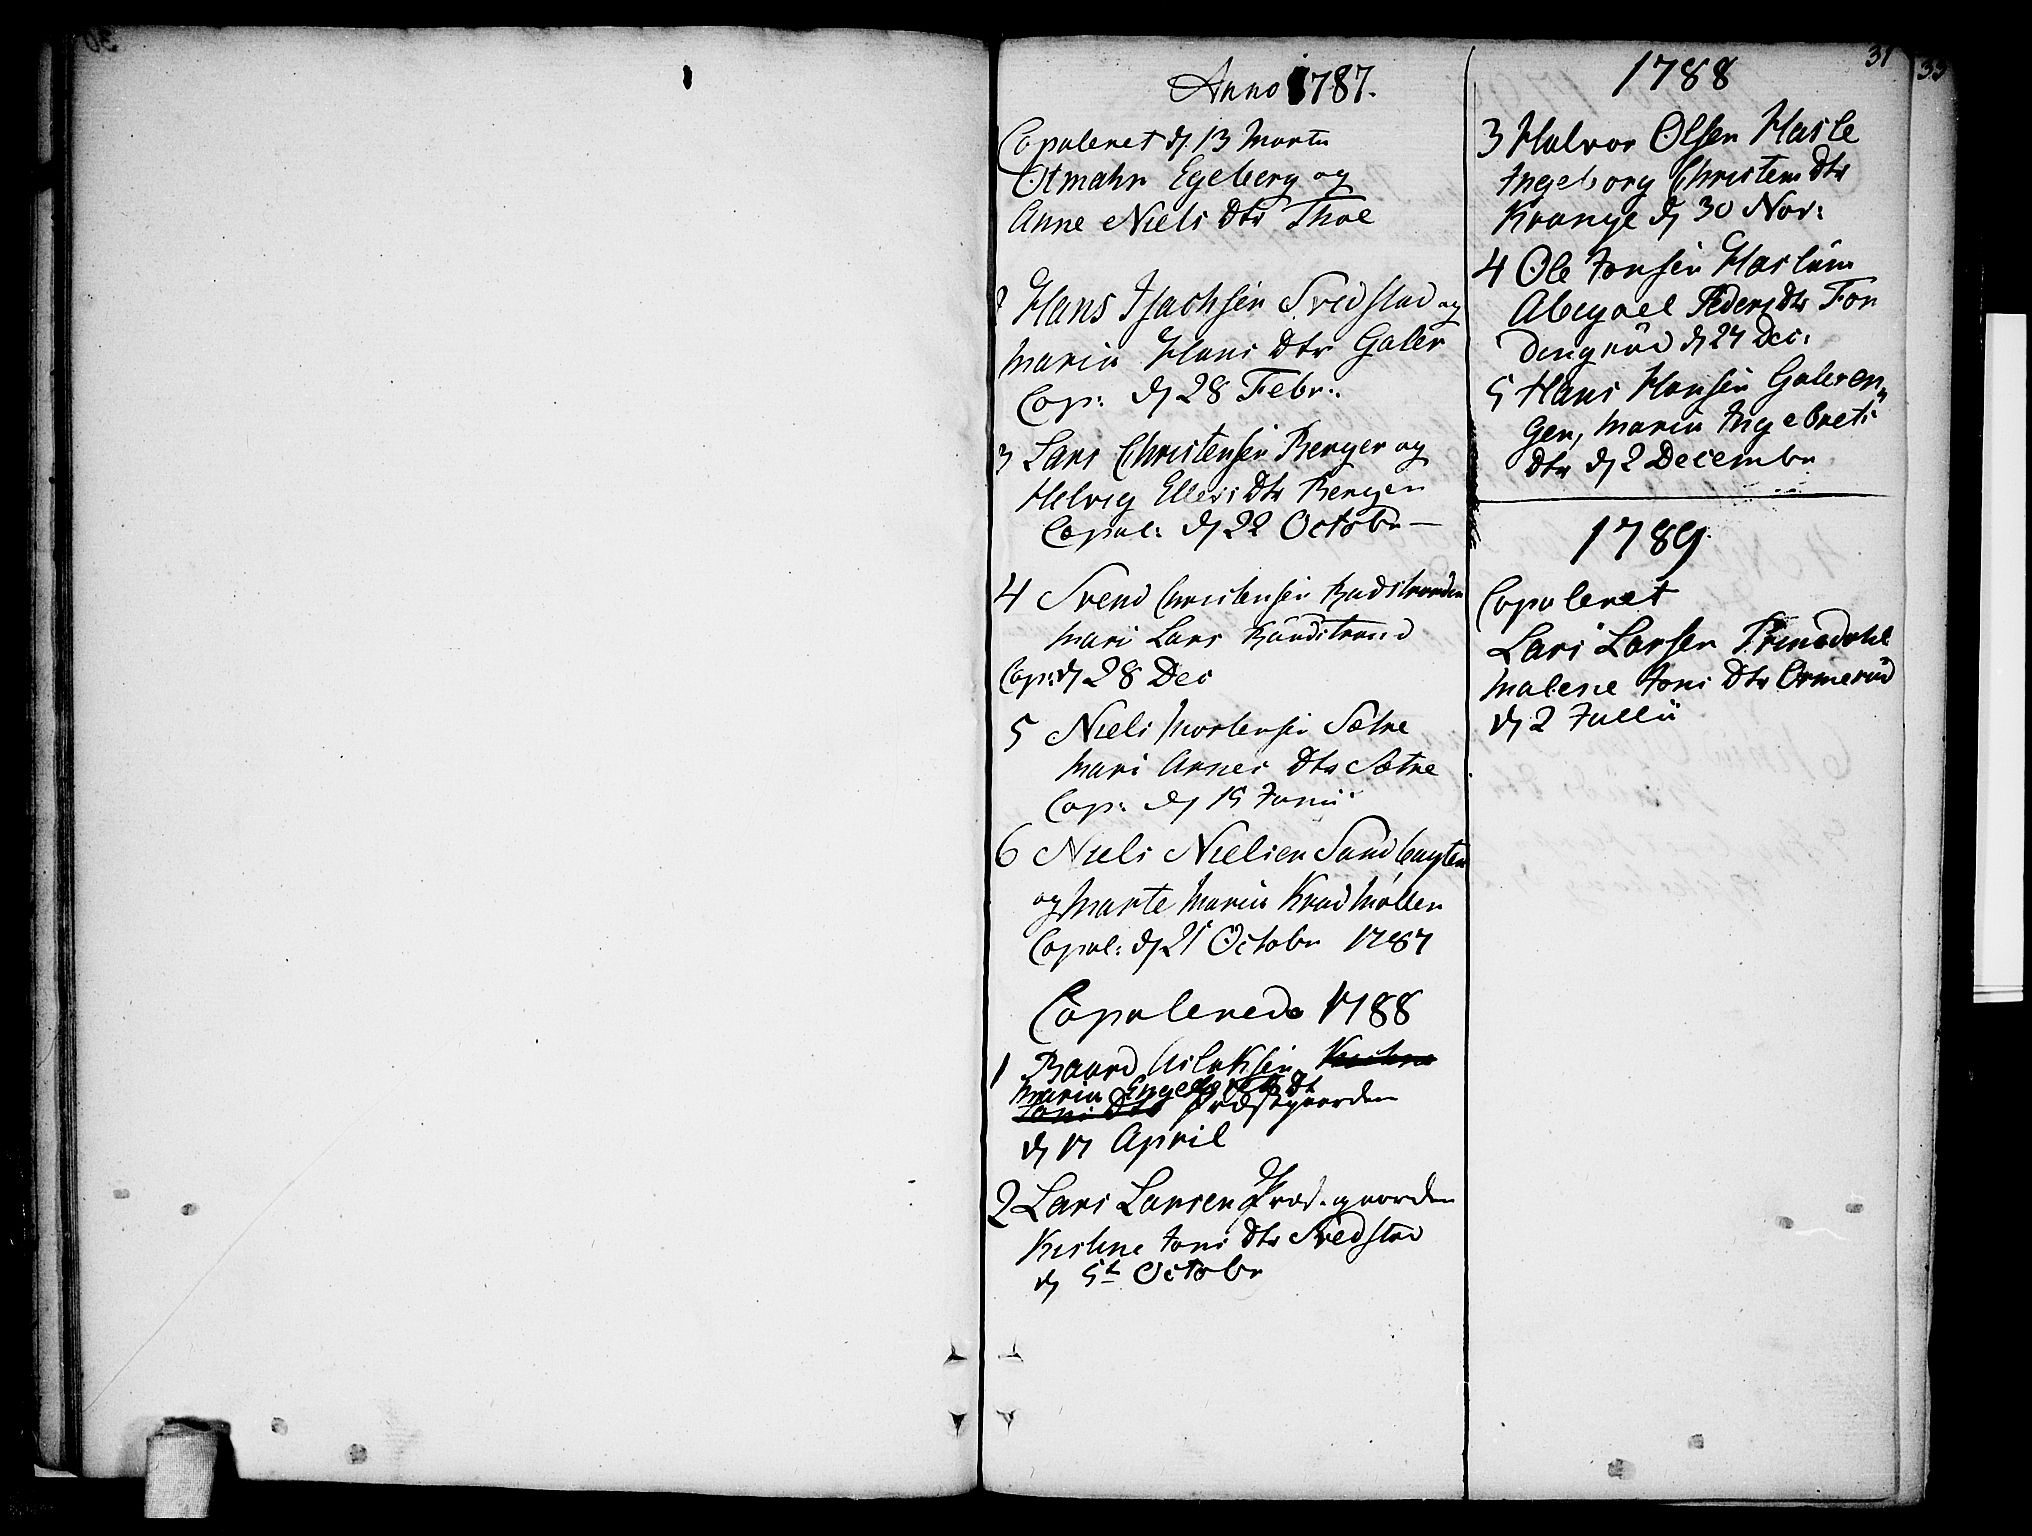 31
33
Anno 1787.
Copuleret d. 13 Martii
Otmahr Egeberg og
Anne Niels Dtr Thoe
2 Hans Isachsen Svedstad og
Maria Hans Dtr Galer
Cop: d 28 Febr:
3 Lars Christensen Berger og
Helvig Ellers Dtr Bergen
Copul: d 22 Octobr
4 Svend Christensen
Mari Lars
Cop: d 28 Dec
5 Niels Mortensen Sætre
Mari Arnes Dtr Sætre
Cop: d 15 Junii
6 Niels Nielsen Sandbugten
og Marte Maria Krudmøllen
Copul: d 21 Octobr 1787
Copulerede 1788
1 Baard Aslaksen
Maria Engebrets Dt
Jons Dtr Præstgaarden
d 17 April
2 Lars Larsen Præst.gaarden
Kistine Jons Dtr Svedstad
d 5t Octobr
1788
3 Halvor Olsen Hasle
Ingeborg Christens Dtr
Krange d 30 Nov:
4 Ole Jonsen Haslum
Abegael Peders Dtr Fon
dengrud d 27 Dec:
5 Hans Hansen Galeren,,
gen, Maria Ingebrets
Dtr d 2 Decembr
1789.
Copuleret
Lars Larsen Prinsdahl
Malene Jons Dtr Ormerud
d 2 Julii